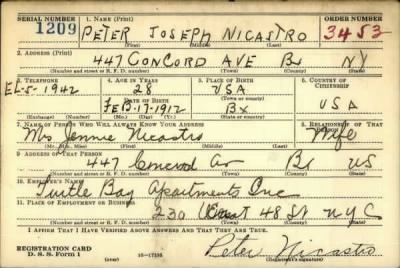 SERIAL NUMBER 1. NAME (Print) ORDER NUMBER
1209 PETER JOSEPH NICASTRO 3453
(First) (Middle) (Last)
2. ADDRESS (Print)
447 CONCORD AVE Bx NY
(Number and street or R. F. D. number) (Town) (County) (State)
3. TELEPHONE 4. AGE IN YEARS 5. PLACE OF BIRTH 6. COUNTRY OF CITIZENSHIP
EL-5-1942 28 USA
DATE OF BIRTH (Town or county)
FEB-17-1912 Bx USA
(Exchange) (No.) (Mo.) (Day) (Yr.) (State or country)
7. NAME OF PERSON WHO WILL ALWAYS KNOW YOUR ADDRESS 8. RELATIONSHIP OF THAT PERSON
Mrs Jennie Nicastro Wife
(Mr., Mrs., Miss) (First) (Middle) (Last)
9. ADDRESS OF THAT PERSON
447 Concord Av Bx US
(Number and street or R. F. D. number) (Town) (County) (State)
10. EMPLOYER'S NAME
Turtle Bay Apartments Inc
11. PLACE OF EMPLOYMENT OR BUSINESS
230 East 48 St NYC
(Number and street or R. F. D. number) (Town) (County) (State)
I AFFIRM THAT I HAVE VERIFIED ABOVE ANSWERS AND THAT THEY ARE TRUE.
REGISTRATION CARD
D. S. S. Form 1 (over) 16-17105 Peter Nicastro
(Registrant's signature)